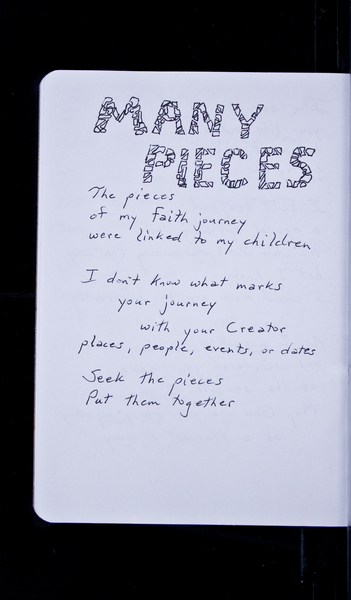 MANY
PIECES
The pieces
of my faith journey
were linked to my children
I don't know what marks
your journey
with your Creator
places, people, events, or dates
Seek the pieces
Put them together